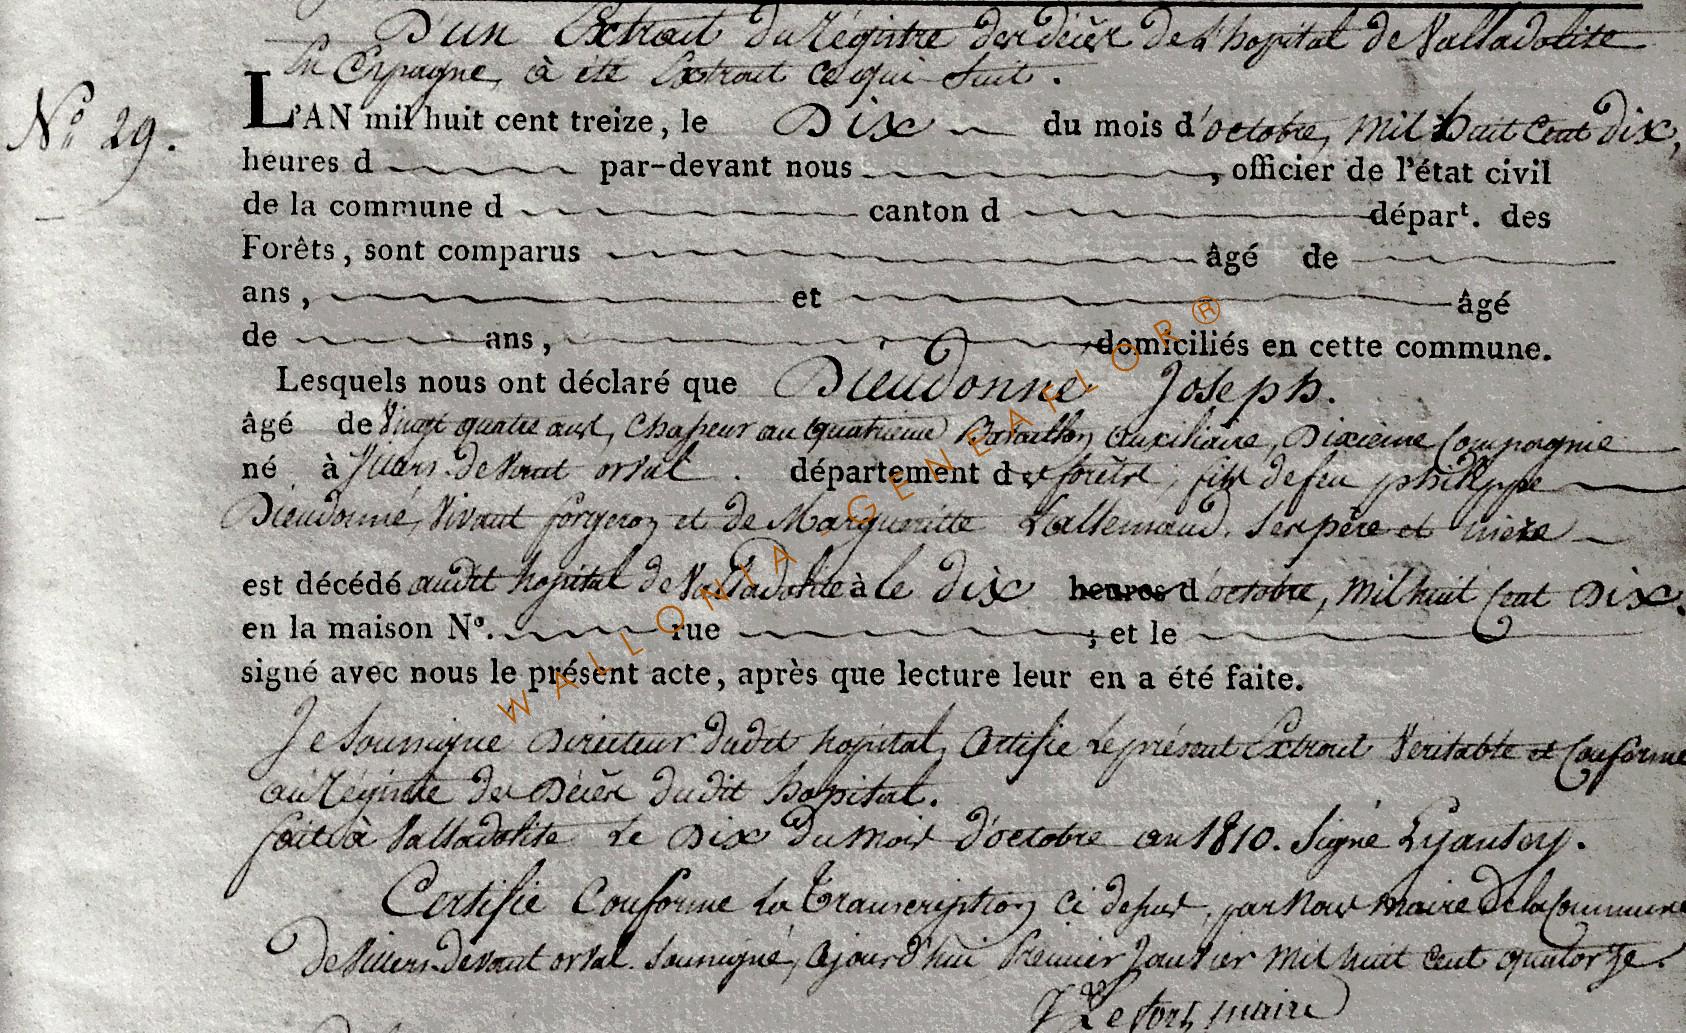 D'un Extrait du Régistre des décès de l'hopital de Valladolite
En Espagne, à été Extrait ce qui suit.
N.º 29.
L'AN mil huit cent treize, le Dix du mois d'octobre, mil huit Cent dix,
heures d par-devant nous , officier de l'état civil
de la commune d canton d départ. des
Forêts, sont comparus âgé de
ans, et âgé
de ans, , domiciliés en cette commune.
Lesquels nous ont déclaré que Dieudonné Joseph.
âgé de Vingt quatre ans, Chasseur au quatrieme Bataillon auxiliaire, Dixième Compagnie
né à Villers-devant orval. département des forêts, fils de feu philippe
Dieudonné, Vivant forgeron et de Margueritte Lallemand. Ses père et mère
est décédé audit hopital de Valladolite à le dix heures d'octobre, mil huit Cent Dix.
en la maison Nº. rue ; et le
signé avec nous le présent acte, après que lecture leur en a été faite.
Je soussigné Directeur dudit hopital, Certifie le présent Extrait Véritable et Conforme
au Régistre des Décès dudit hopital.
fait à Valladolite le Dix du mois d'octobre an 1810. Signé Lyautey.
Certifié Conforme la Transcription ci dessus, par Nous maire de la Commune
de Villers-devant orval. soussigné, ajourd'hui premier Janvier mil huit cent quatorze.
maire
WALLONIA - GENEAFLOR®